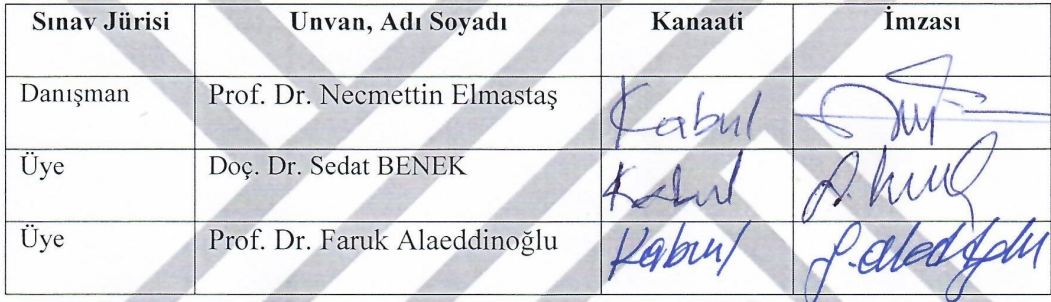 Sınav Jürisi Unvan, Adı Soyadı Kanaati İmzası
Danışman Prof. Dr. Necmettin Elmastaş Kabul
Üye Doç. Dr. Sedat BENEK Kabul
Üye Prof. Dr. Faruk Alaeddinoğlu Kabul